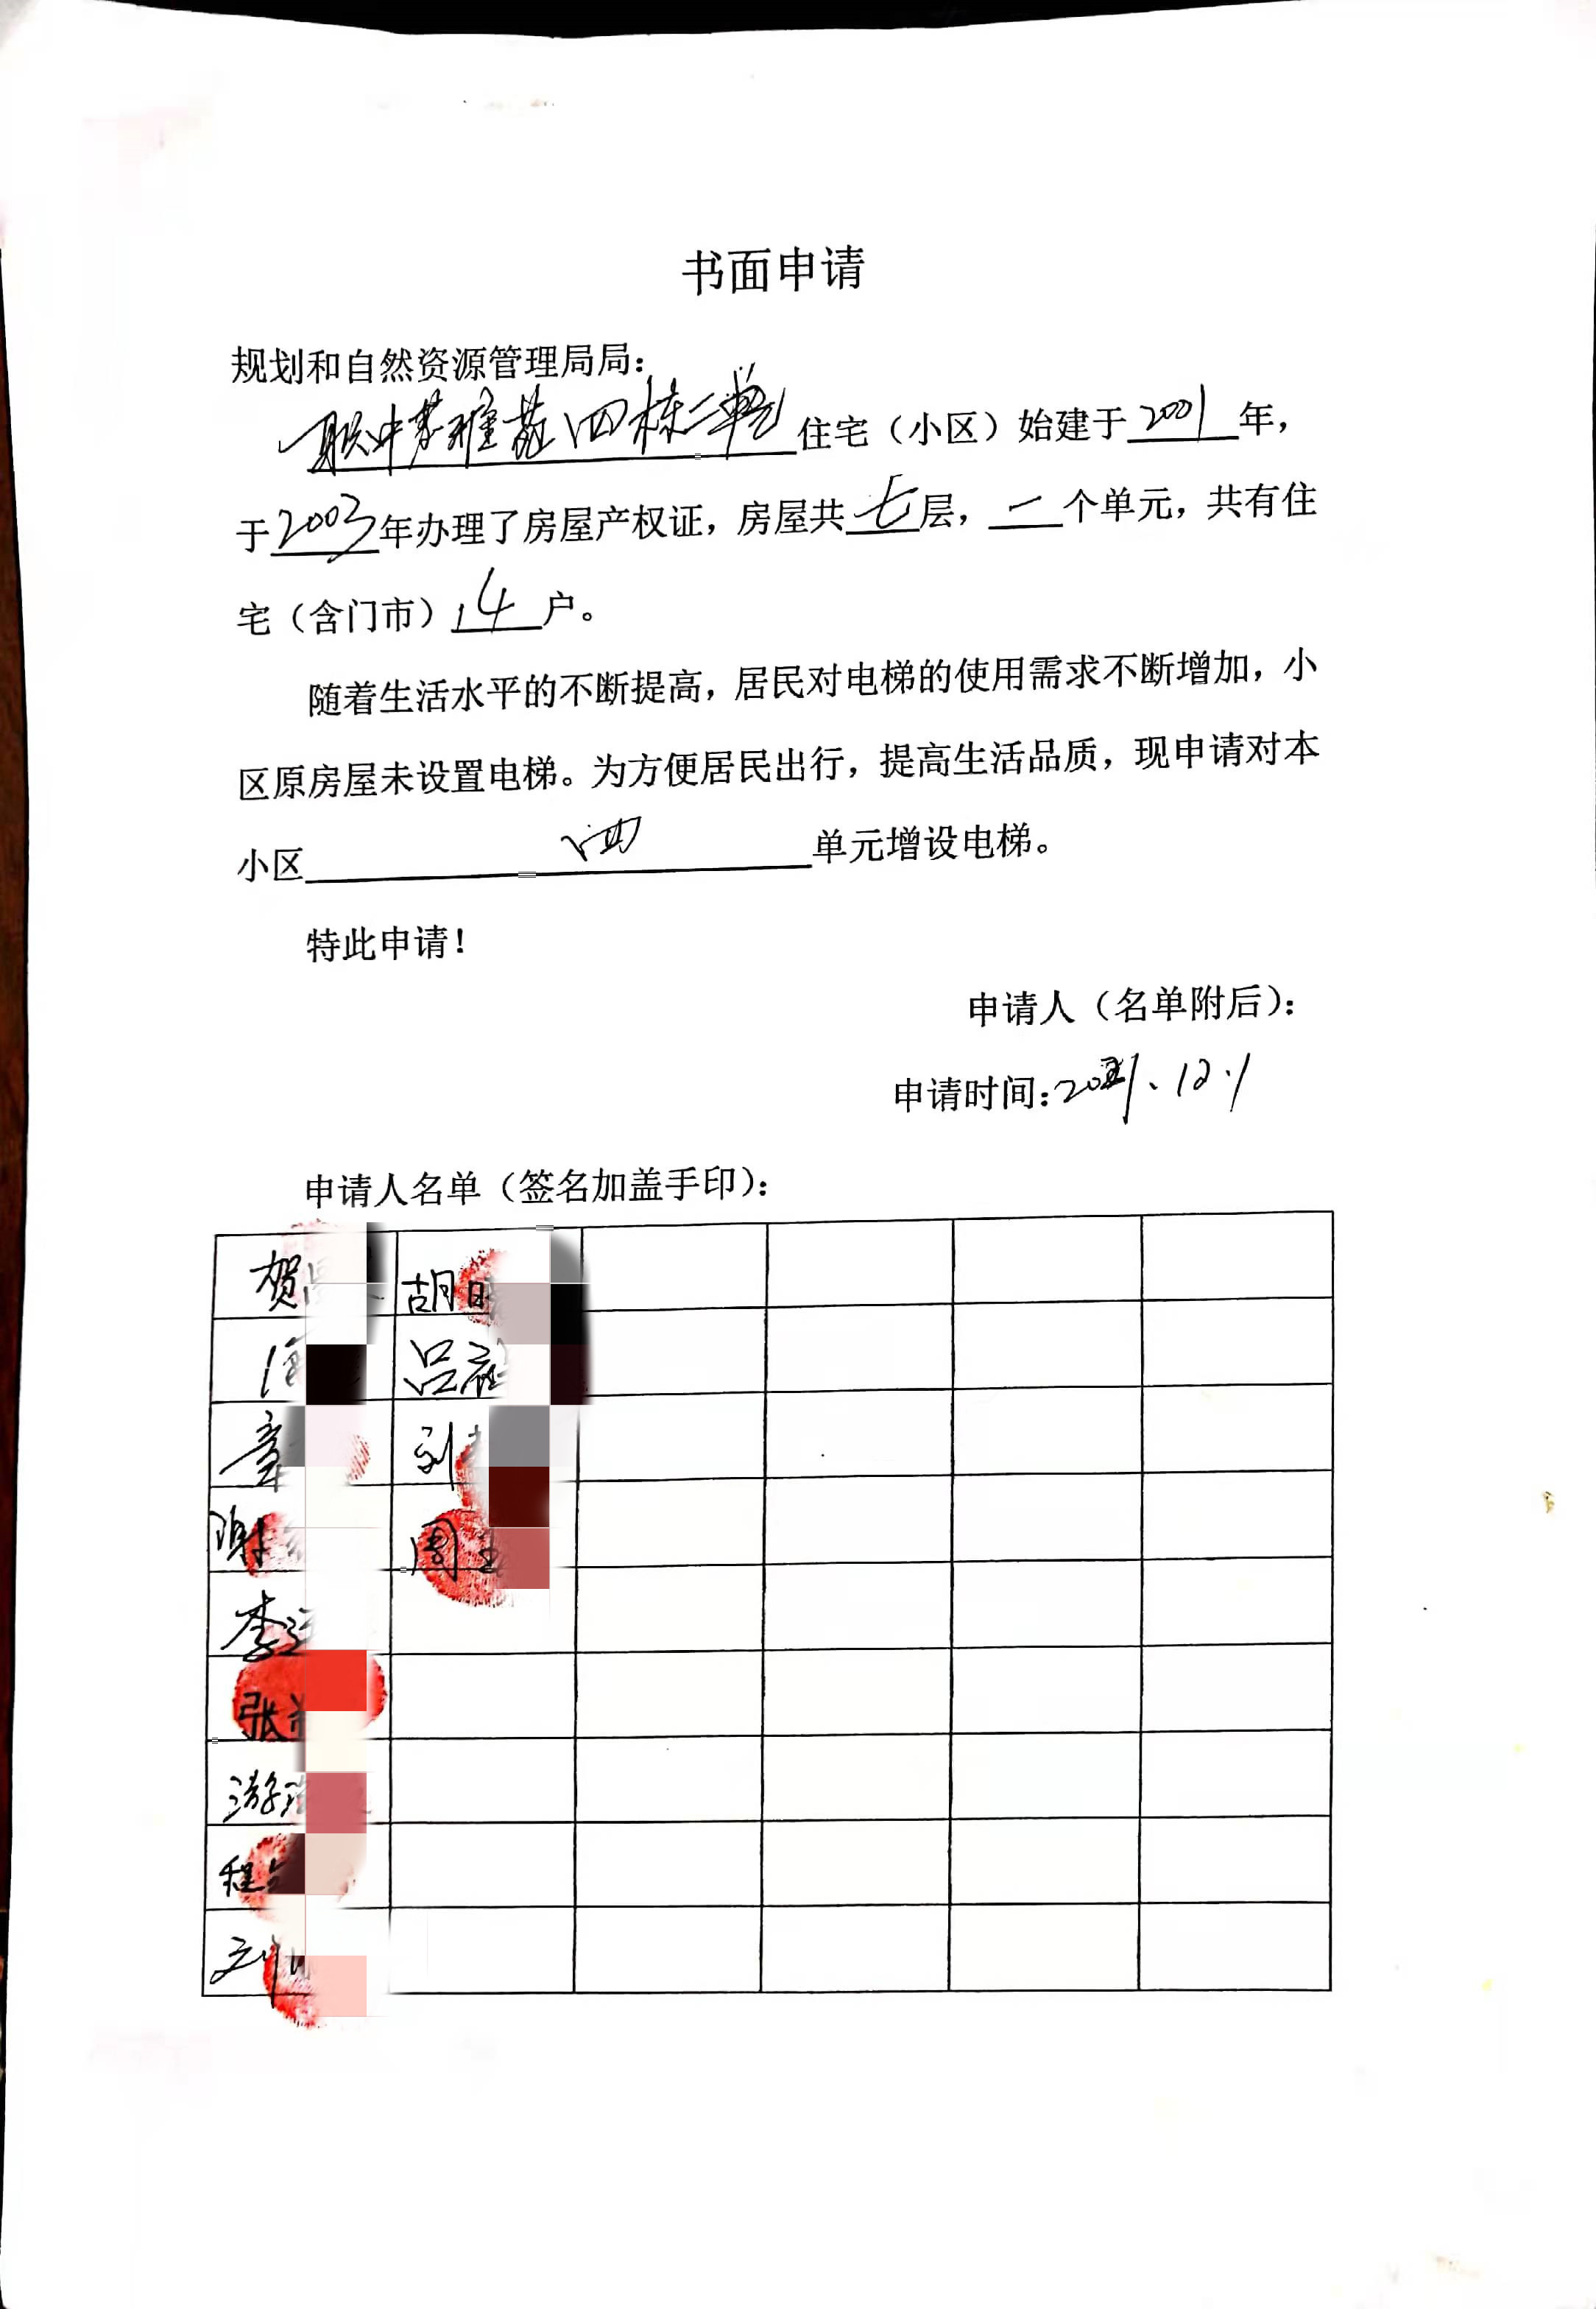 书面申请
规划和自然资源管理局局:
职中茗雅苑四栋二单元住宅（小区）始建于2001年，
于2003年办理了房屋产权证，房屋共七层，一个单元，共有住
宅（含门市）14户。
随着生活水平的不断提高，居民对电梯的使用需求不断增加，小
区原房屋未设置电梯。为方便居民出行，提高生活品质，现申请对本
小区四单元增设电梯。
特此申请！
申请人（名单附后）:
申请时间:2021、12.1
申请人名单（签名加盖手印）:
贺 胡
吕
章 刘
谢 周
李
张
游
程
刘